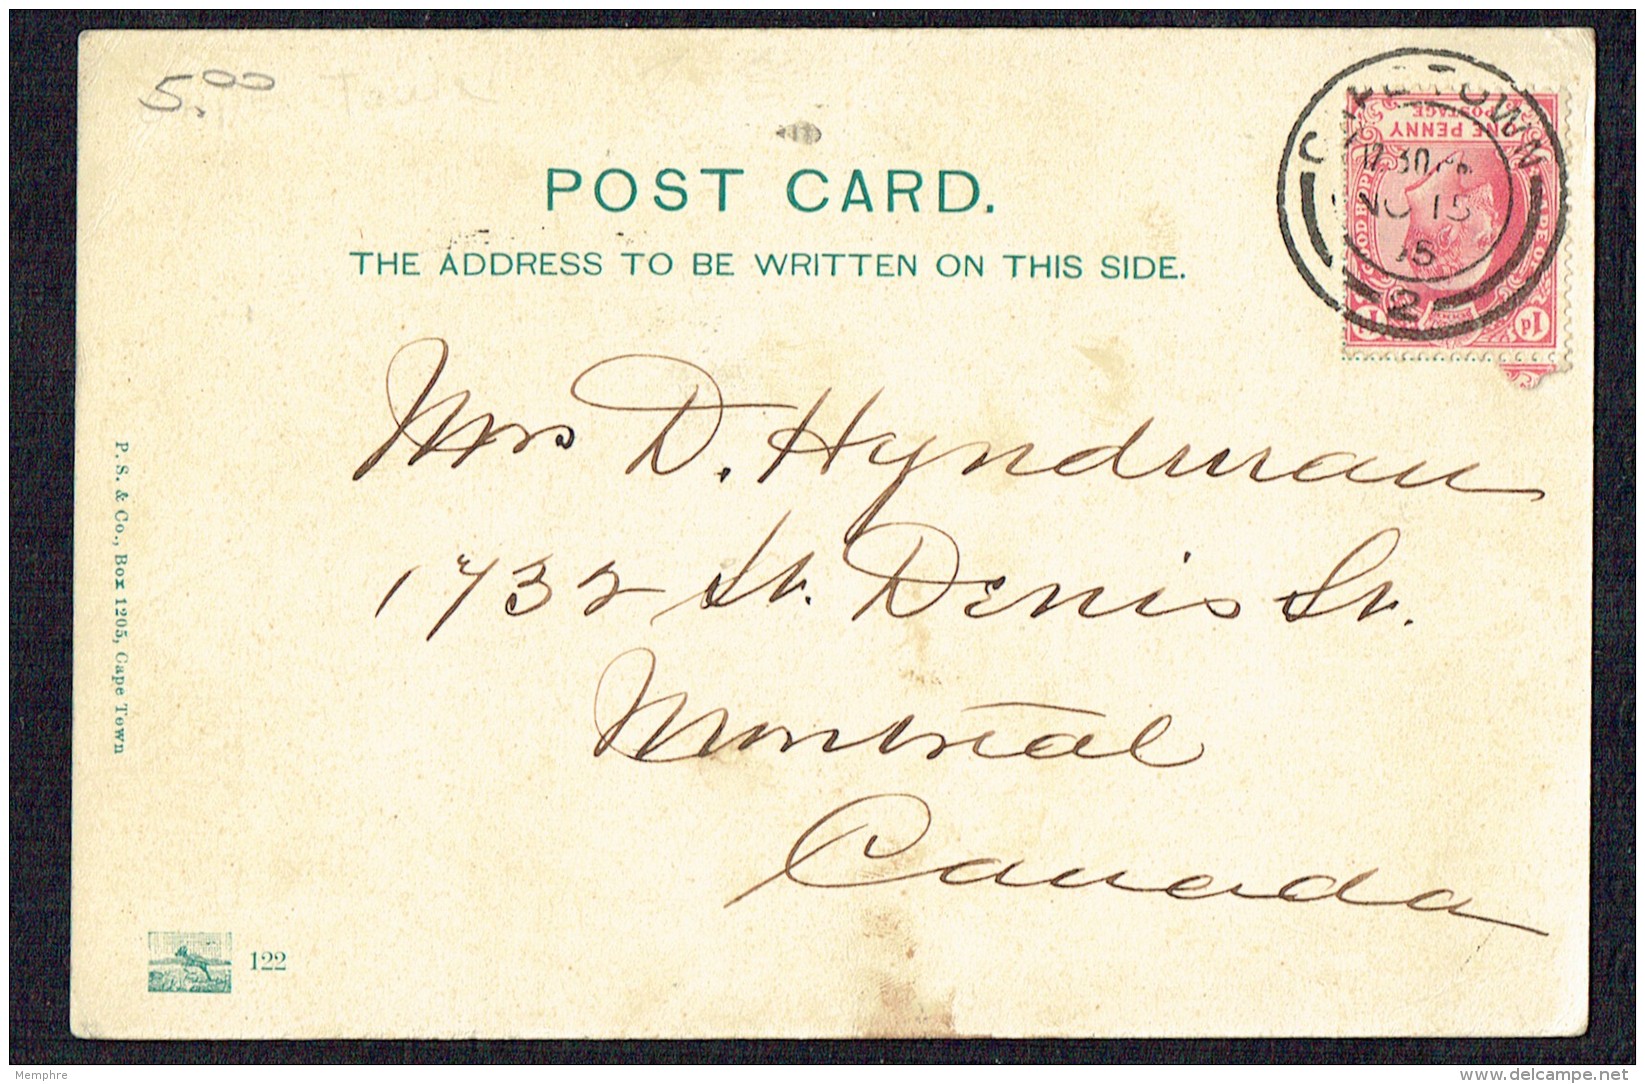 5.00
POST CARD.
THE ADDRESS TO BE WRITTEN ON THIS SIDE.
ONE PENNY
POSTAGE
1d
NO 15
15
2
Mrs D. Hyndman
1732 St. Denis St.
Montreal
Canada
P. S. & Co., Box 1205, Cape Town
122
Memphre
delcampe.net